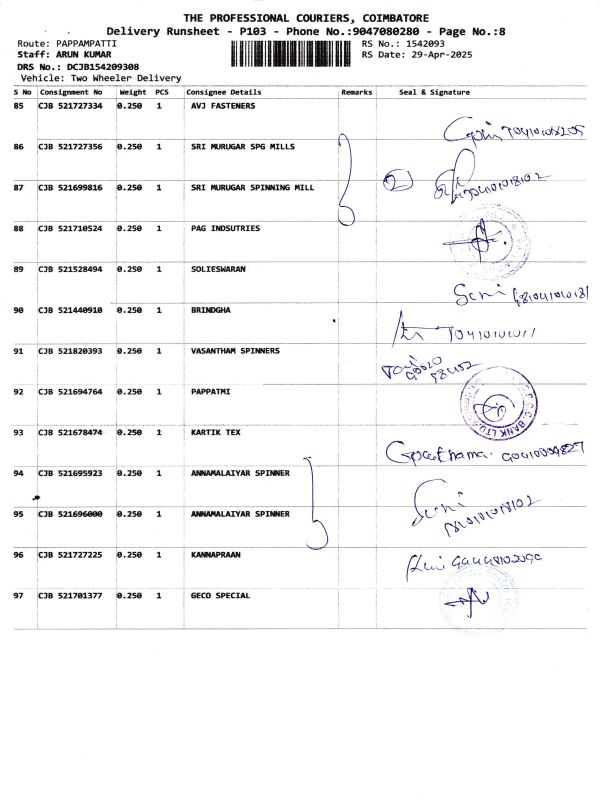 THE PROFESSIONAL COURIERS, COIMBATORE
Delivery Runsheet - P103 - Phone No.:9047080280 - Page No.:8
Route: PAPPAMPATTI RS No.: 1542093
Staff: ARUN KUMAR RS Date: 29-Apr-2025
DRS No.: DCJB154209308
Vehicle: Two Wheeler Delivery
S No Consignment No Weight PCS Consignee Details Remarks Seal & Signature
85 CJB 521727334 0.250 1 AVJ FASTENERS
86 CJB 521727356 0.250 1 SRI MURUGAR SPG MILLS
87 CJB 521699816 0.250 1 SRI MURUGAR SPINNING MILL 2
88 CJB 521710524 0.250 1 PAG INDSUTRIES
89 CJB 521528494 0.250 1 SOLIESWARAN
90 CJB 521440910 0.250 1 BRINDGHA
91 CJB 521820393 0.250 1 VASANTHAM SPINNERS
92 CJB 521694764 0.250 1 PAPPATMI
93 CJB 521678474 0.250 1 KARTIK TEX
94 CJB 521695923 0.250 1 ANNAMALAIYAR SPINNER
95 CJB 521696000 0.250 1 ANNAMALAIYAR SPINNER
96 CJB 521727225 0.250 1 KANNAPRAAN
97 CJB 521701377 0.250 1 GECD SPECIAL